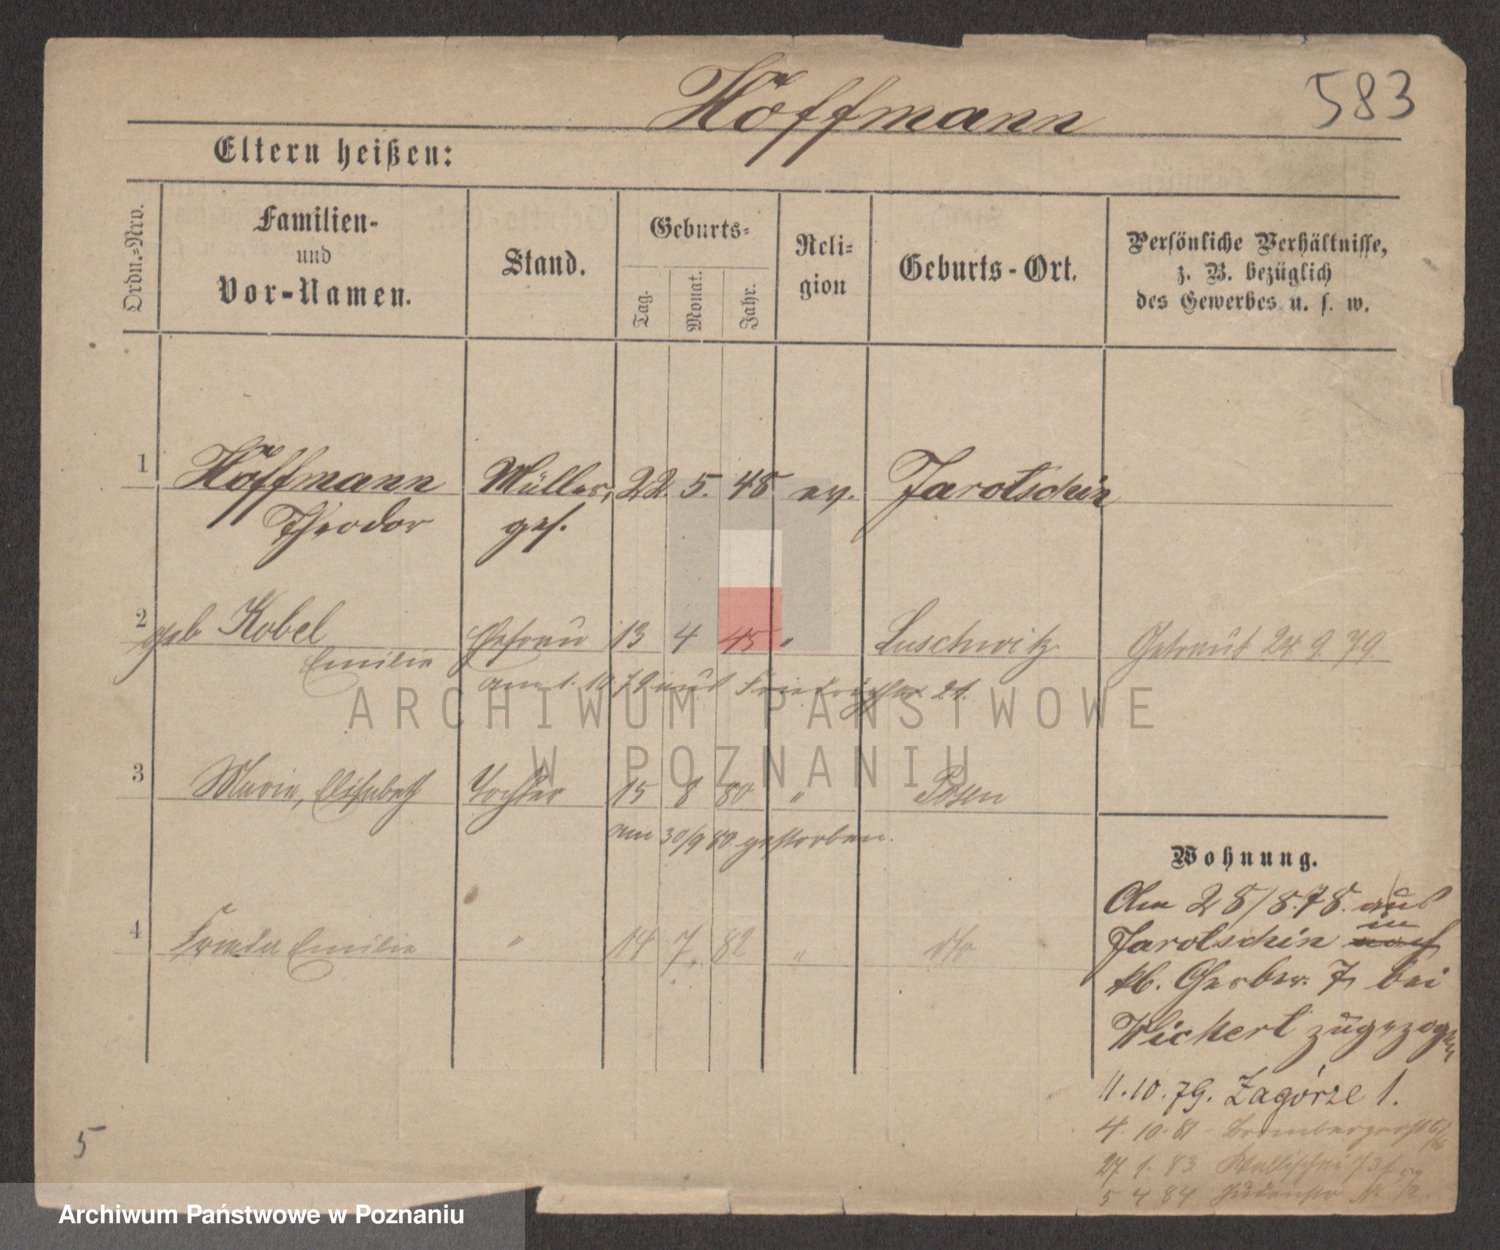 Hoffmann
583
Eltern heißen:
Ordn.-Nro.
Familien-
und
Vor-Namen.
Stand.
Geburts-
Tag.
Monat.
Jahr.
Reli-
gion
Geburts-Ort.
Persönliche Verhältnisse,
z. B. bezüglich
des Gewerbes u. s. w.
1 Hoffmann Müller, 22 5. 48 ev. Jarotschin
Theodor ges.
2 geb Kobel Ehefrau 13 4 45 " Luschwitz Getraut 24 9 79
Emilie
am 1. 10 79 aus 21.
3 Marie, Elisabeth Tochter 15 8 80 " Posen
am 30/9 80 gestorben.
4 Frieda Emilie " 14 7. 82 " dto
Wohnung.
Am 28/8.78. aus
in
Jarotschin nach
kl. Gerber. 7 bei
Wichert zugezogen
11.10.79. Zagórze 1.
4. 10. 81 Brombergerstr
27 1. 83 Wallischei 73
5 4 84
5
ARCHIWUM PAŃSTWOWE
W POZNANIU
Archiwum Państwowe w Poznaniu